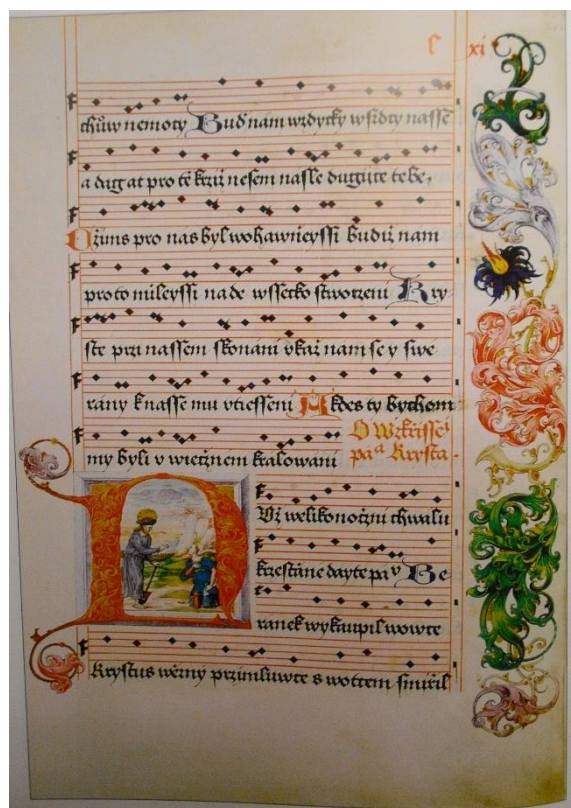 f xi
chůw nemocy Bud nam wzdycky w srdcy nasse
a dag at pro tě krziz nesem nasle dugiice tebe,
Ožiims pro nas byl wohawněyssi budiz nam
pro to mileyssi na de wssecko stworzeni Kry
ste przi nassem skonani vkaz nam se y swe
rany k nasse mu vtiesseni A kdes ty bychom
my byli v wieczném kralowani O Wzkrisse
pa a Krysta
NUz welikonoczni chwalu
krzestane dayte pa v Be
ranek wykaupil wowce
Krystus wěrny przimluwce s wottcem smirzil